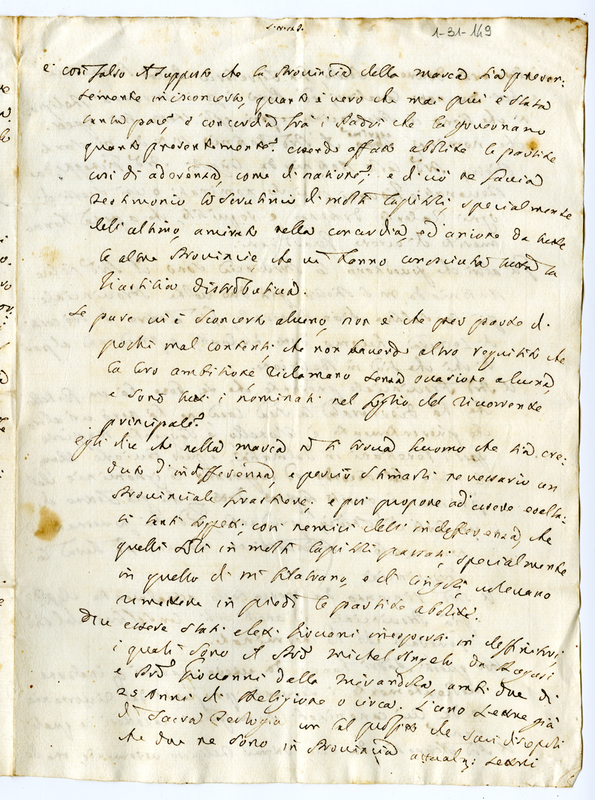 1-31-149
è così falso il supposto che la Provincia della marca sia presen-
temente in isconcerto, quanto è vero che mai più è stata
tanta pace, e concordia frà i Padri che la governano
quanto presentemente: essendo affatto abolite le partite
così di aderenza, come di natione: e di ciò ne faccia
testimonio lo scrutinio di molti Capitoli, specialmente
dell'ultimo, amirato nella concordia, ed ancione da tutte
le altre Provincie che vi hanno conosciuta tutta la
Giustitia distributiva.
Se pure vi è sconcerto alcuno, non è che per parte di
pochi mal contenti, che non havendo altro requisito che
la loro ambitione reclamano senza occasione alcuna,
e sono tutti i nominati nel foglio del ricorrente
principale.
Egli dice che nella marca non si trova huomo che sia cre-
duto d'indifferenza, e perciò stimarsi necessario un
Provinciale forastiere; e poi propone ad essere esalta-
ti tanti soggetti, così nemici dell'indifferenza, che
quelli soli in molti Capitoli passati, specialmente
in quello di e di volevano
rimettere in piedi le partite abolite.
Dice essere stati eletti Giovani inesperti in deffinitori,
i quali sono il Pre Michel Angelo da
e Pre Giovanni della Mirandola, ambi due di
25 Anni di Religione o circa. L'uno Lettore già
di Sacra Teologia un tal che suoi discepoli
che due ne sono in Provincia attualmte Lettori